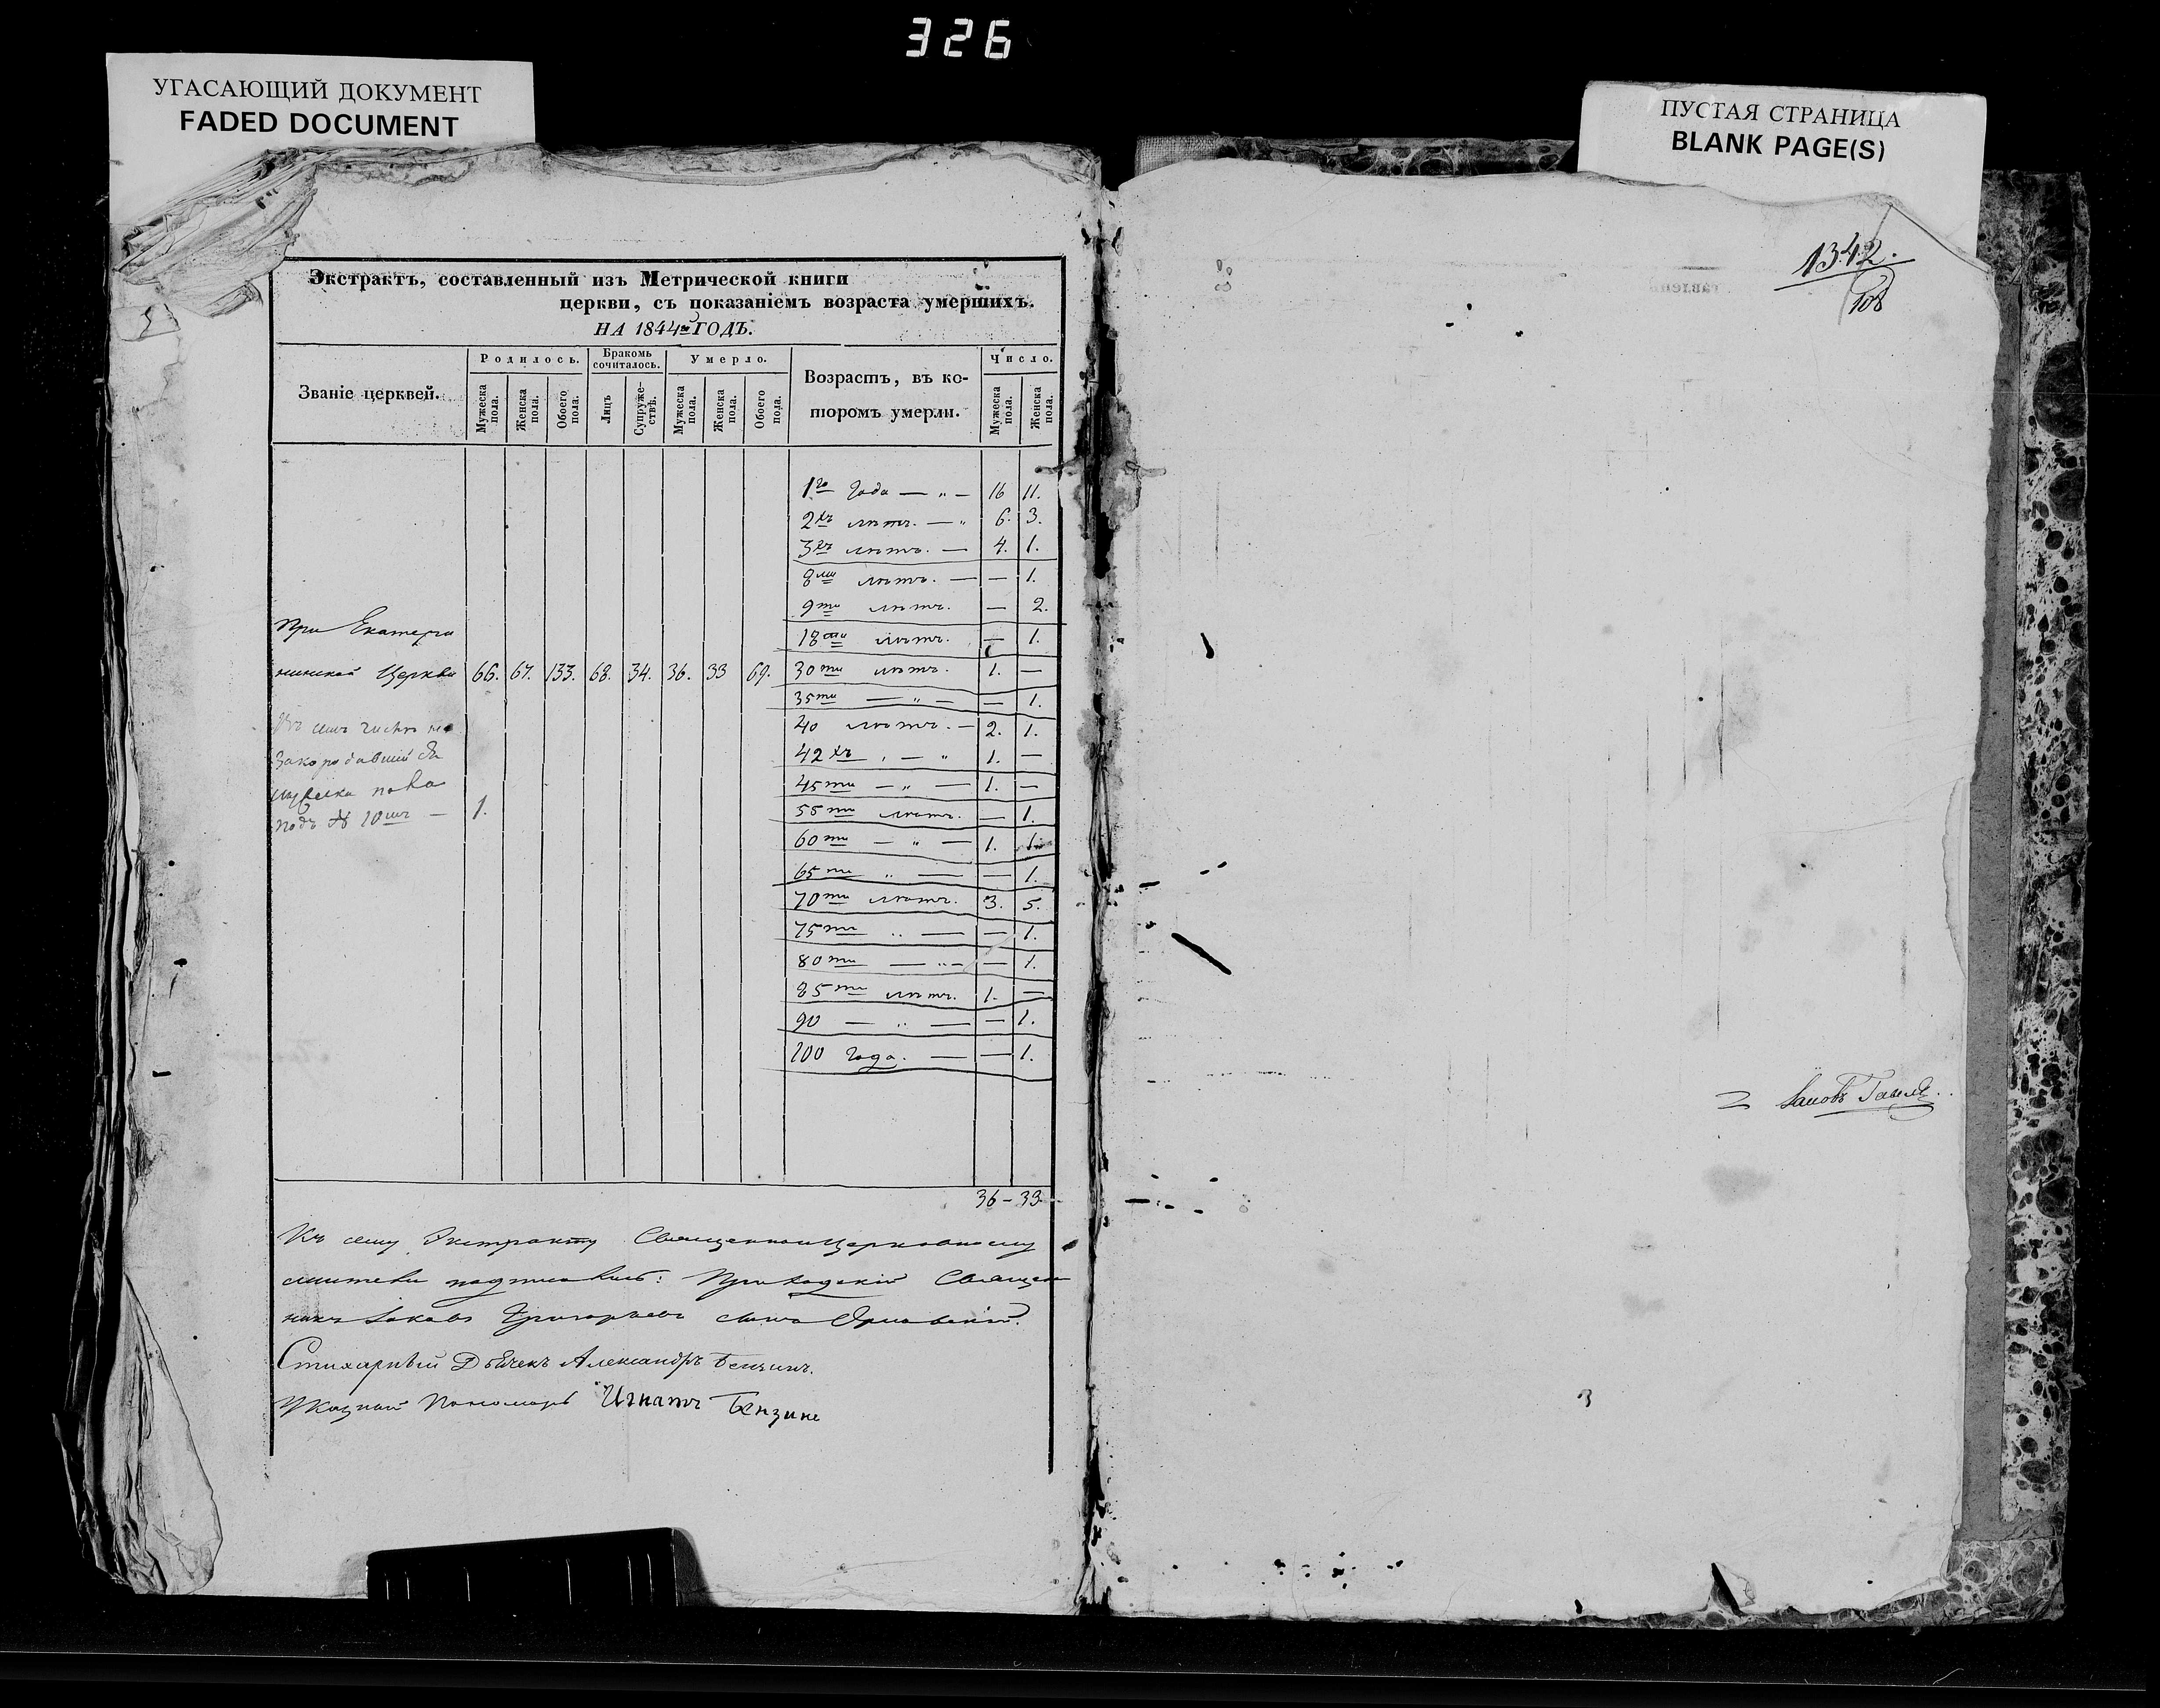 326
УГАСАЮЩИЙ ДОКУМЕНТ
FADED DOCUMENT
Экстрактъ, составленный изъ Метрической книги
церкви, съ показаніемъ возраста умершихъ.
НА 1844й ГОДЪ.
Званіе церквей.
Родилось.
Бракомъ сочиталось.
Умерло.
Возрастъ, въ ко-
торомъ умерли.
Число.
Мужеска пола.
Женска пола.
Обоего пола.
Лицъ
Супруже-ствъ.
Мужеска пола.
Женска пола.
Обоего пола.
Мужеска пола.
Женска пола.
1го года — „ — 16 11.
2хъ лѣтъ. — „ 6. 3.
3хъ лѣтъ. — 4. 1.
8ми лѣтъ. — — 1.
9ти лѣтъ. — 2.
При Екатери
18ти лѣтъ. — 1.
нинской Церкви 66. 67. 133. 68. 34. 36. 33 69. 30ти лѣтъ. 1. —
35ти — „ — — 1.
Въ семъ числѣ не
40 лѣтъ. — 2. 1.
42хъ „ — „ 1. —
мужеска пола
45ти — „ — 1. —
подъ № 10мъ — 1.
55ти лѣтъ. — 1.
60ти — „ — 1. 1.
65ти „ — — 1.
70ти лѣтъ. 3. 5.
75ти „ — — 1.
80ти — „ — — 1.
85ти лѣтъ. 1. —
90 — „ — — 1.
100 года. — — 1.
36 – 33
Къ сему Экстракту Священноцерковно
служители подписались: Приходскій Священ
никъ Іаковъ Григорьевъ сынъ
Стихарный Дьячекъ Александръ Бензинъ.
Указный Пономарь Игнатъ Бензинъ
ПУСТАЯ СТРАНИЦА
BLANK PAGE(S)
1342.
108